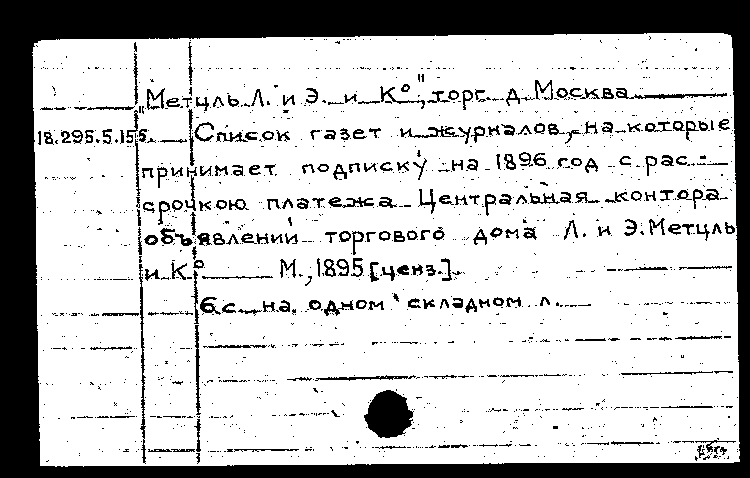 „Метцль Л. и Э. и К°", торг. д. Москва
18.295.5.155. Список газет и журналов, на которые
принимает подписку на 1896 год с рас-
срочкою платежа Центральная контора
объявлений торгового дома Л. и Э. Метцль
и К° М., 1895 [ценз.].
6 с. на одном складном л.